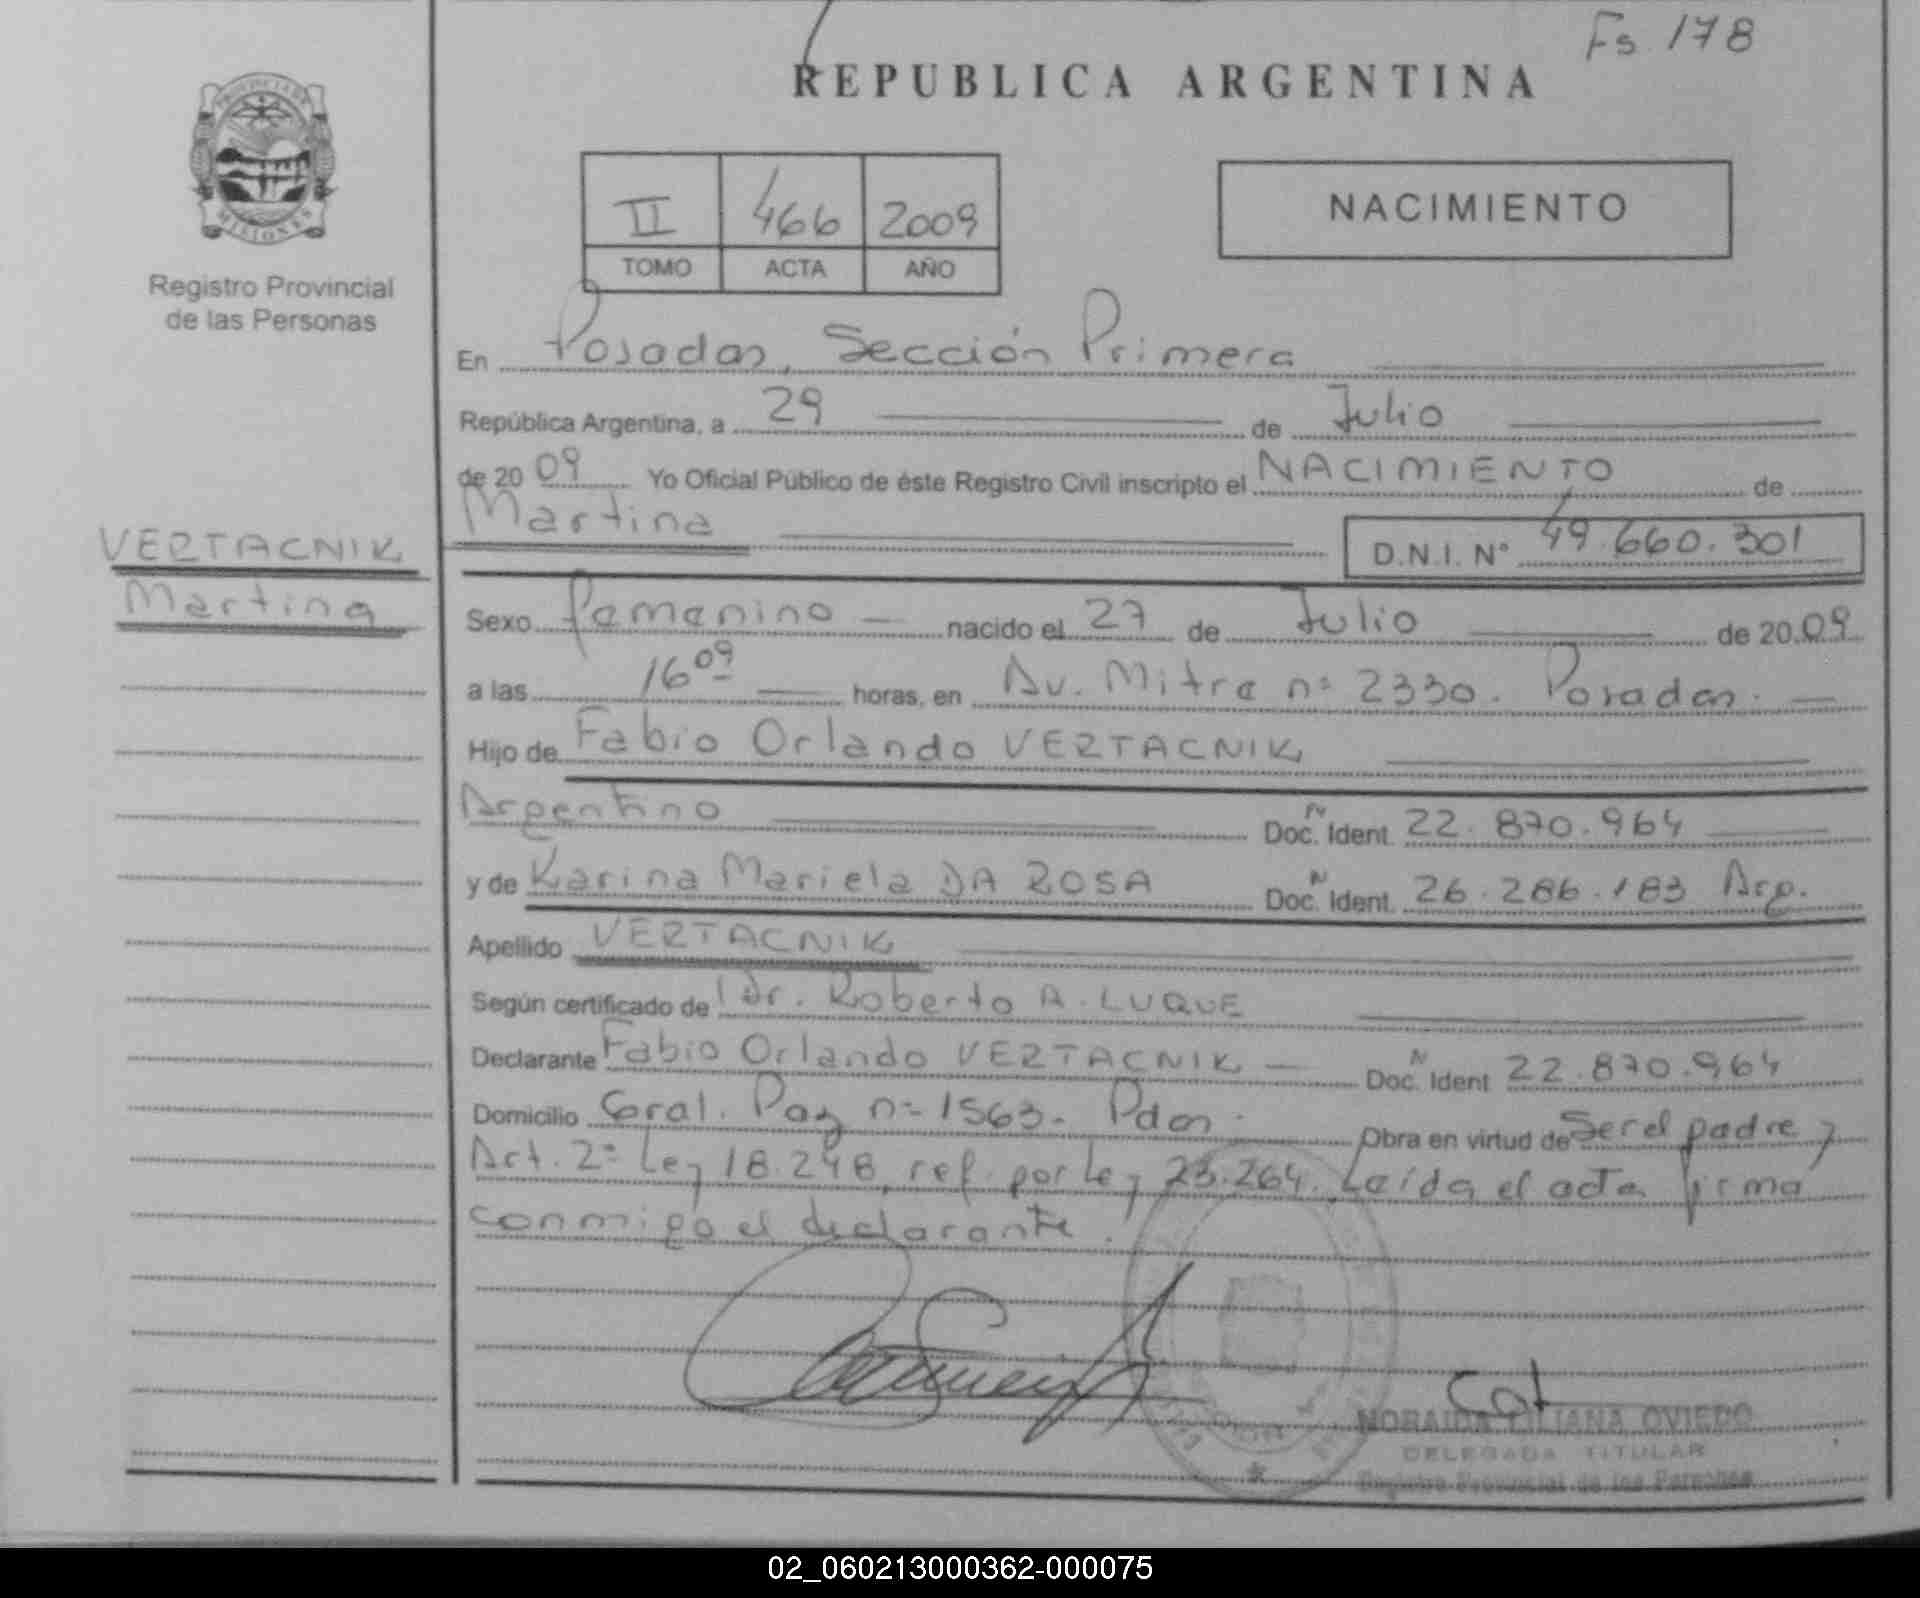 Fs. 178
REPUBLICA ARGENTINA
PROVINCIA DE
MISIONES
Registro Provincial
de las Personas
II 466 2009
TOMO ACTA AÑO
NACIMIENTO
En Posadas, Sección Primera
República Argentina, a 29 de Julio
de 2009 Yo Oficial Público de éste Registro Civil inscripto el NACIMIENTO de
Martina
D.N.I. N° 49.660.301
VERTACNIK
Martina
Sexo femenino nacido el 27 de Julio de 2009
a las 16 09 horas, en Av. Mitre n° 2330. Posadas.
Hijo de Fabio Orlando VERTACNIK
Argentino Doc. Ident. N 22.870.964
y de Karina Mariela DA ROSA Doc. Ident. N 26.286.183 Arg.
Apellido VERTACNIK
Según certificado de Dr. Roberto A. LUQUE
Declarante Fabio Orlando VERTACNIK Doc. Ident N 22.870.964
Domicilio Gral. Paz n° 1563. Pdas. Obra en virtud de Ser el padre y
Art. 2° Ley 18.248, ref. por Ley 23.264. Leída el acta firma
conmigo el declarante.
MORAIDA LILIANA OVIEDO
DELEGADA TITULAR
Registro Provincial de las Personas
02_060213000362-000075